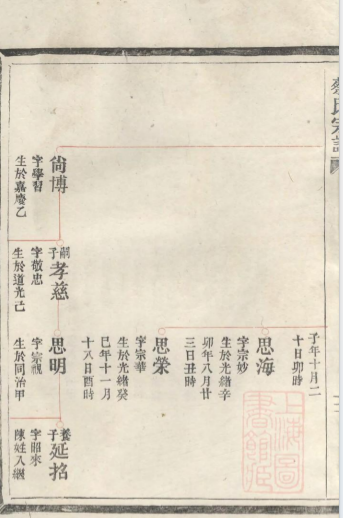 蔡氏宗譜
子年十月二
十日卯時
思海
字宗妙
生於光緒辛
卯年八月廿
三日丑時
思榮
字宗華
生於光緒癸
巳年十一月
十八日酉時
尙博
字學習
生於嘉慶乙
嗣子孝慈
字敬忠
生於道光己
思明
字宗覝
生於同治甲
養子延招
字昭來
陳姓入繼
上海圖
書館藏